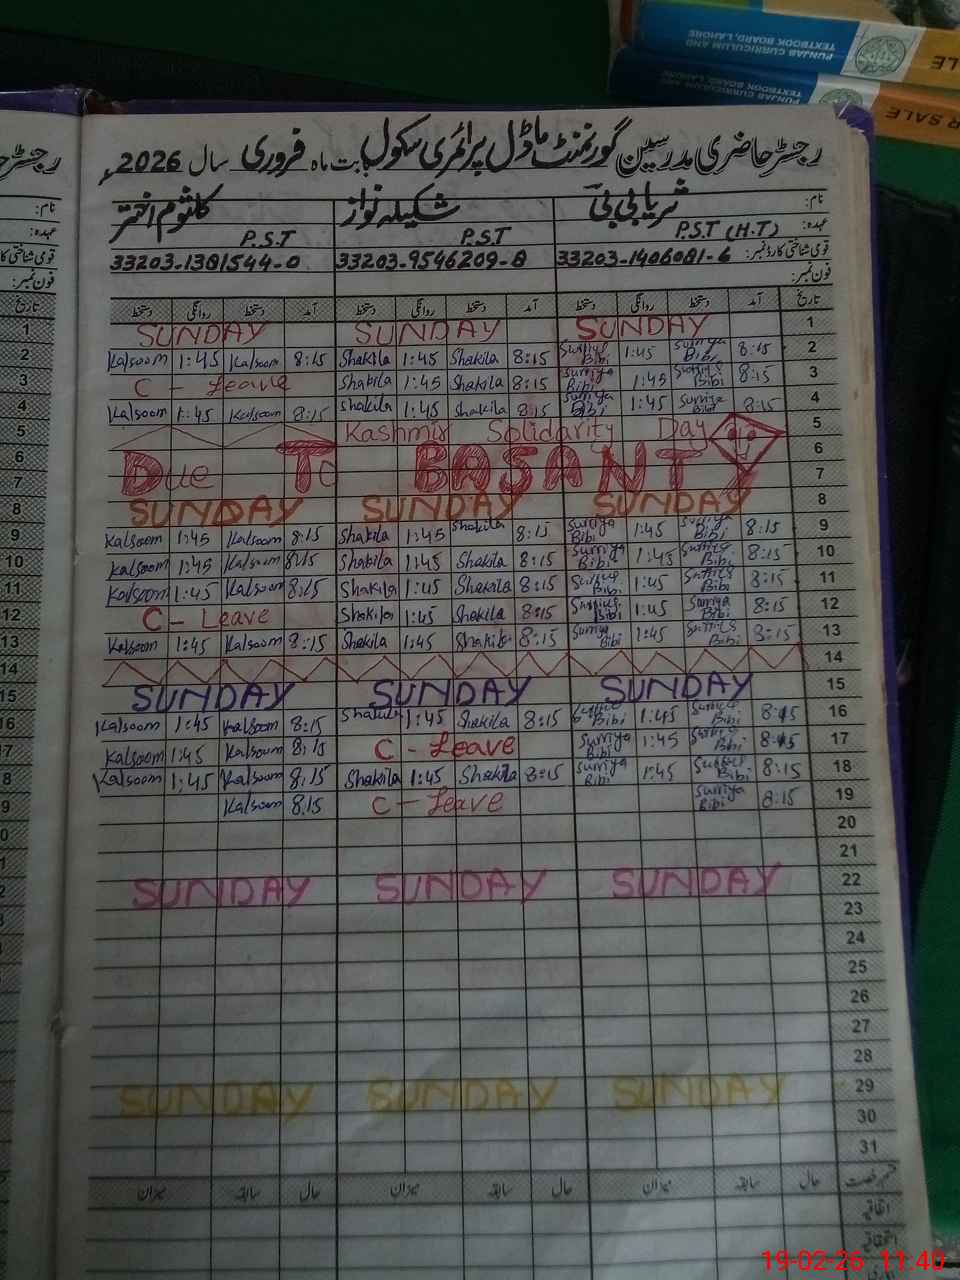 PUNJAB CURRICULUM AND
TEXTBOOK BOARD, LAHORE
LE
PUNJAB CURRICULUM AND
TEXTBOOK BOARD, LAHORE
R SALE
رجسٹر حاضری مدرسین گورنمنٹ ماڈل پرائمری سکول بابت ماہ فروری سال 2026ء
نام: ثریا بی بی شکیلہ نواز کلثوم اختر
عہدہ: P.S.T (H.T) P.S.T P.S.T
قومی شناختی کارڈ نمبر: 33203-1406081-6 33203-9546209-8 33203-1381544-0
فون نمبر:
تاریخ آمد دستخط روانگی دستخط آمد دستخط روانگی دستخط آمد دستخط روانگی دستخط
SUNDAY SUNDAY SUNDAY 1
Kalsoom 1:45 Kalsoom 8:15 Shakila 1:45 Shakila 8:15 Surriya Bibi 1:45 Surriya Bibi 8:15 2
C - Leave Shakila 1:45 Shakila 8:15 Surriya Bibi 1:45 Bibi 8:15 3
Kalsoom 1:45 Kalsoom 8:15 Shakila 1:45 Shakila 8:15 Surriya Bibi 1:45 Surriya Bibi 8:15 4
Kashmir Solidarity Day 5
Due To BASANT 6
7
SUNDAY SUNDAY SUNDAY 8
Kalsoom 1:45 Kalsoom 8:15 Shakila 1:45 Shakila 8:15 Surriya Bibi 1:45 Bibi 8:15 9
Kalsoom 1:45 Kalsoom 8:15 Shakila 1:45 Shakila 8:15 Surriya Bibi 1:45 Surriya Bibi 8:15 10
Kalsoom 1:45 Kalsoom 8:15 Shakila 1:45 Shakila 8:15 Bibi 1:45 Bibi 8:15 11
C - Leave Shakila 1:45 Shakila 8:15 Bibi 1:45 Surriya Bibi 8:15 12
Kalsoom 1:45 Kalsoom 8:15 Shakila 1:45 Shakila 8:15 Surriya Bibi 1:45 Bibi 8:15 13
14
SUNDAY SUNDAY SUNDAY 15
Kalsoom 1:45 Kalsoom 8:15 Shakila 1:45 Shakila 8:15 Bibi 1:45 Bibi 8:15 16
Kalsoom 1:45 Kalsoom 8:15 C - Leave Surriya Bibi 1:45 Bibi 8:15 17
Kalsoom 1:45 Kalsoom 8:15 Shakila 1:45 Shakila 8:15 Surriya Bibi 1:45 Bibi 8:15 18
Kalsoom 8:15 C - Leave Surriya Bibi 8:15 19
20
21
SUNDAY SUNDAY SUNDAY 22
23
24
25
26
27
28
SUNDAY SUNDAY SUNDAY 29
30
31
حال سابقہ میزان حال سابقہ میزان حال سابقہ میزان
اتفاقیہ
19-02-26 11:40